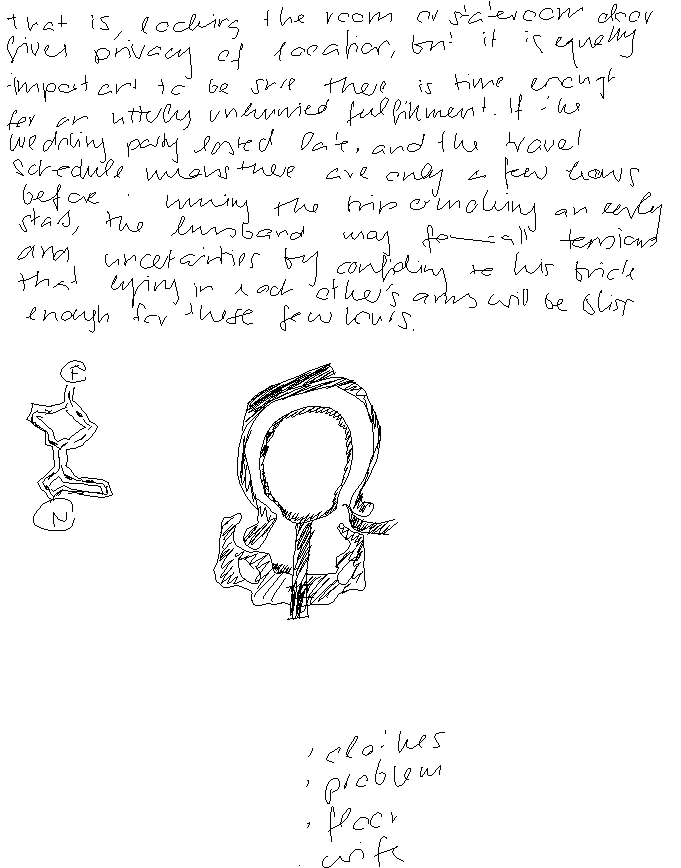 that is, locking the room or stateroom door
gives privacy of location, but it is equally
important to be sure there is time enough
for an utterly unhurried fulfillment. If the
wedding party lasted late, and the travel
schedule means there are only a few hours
before the trip or making an early
start, the husband may forestall tensions
and uncertainties by confiding to his bride
that lying in each other's arms will be bliss
enough for these few hours.
F
N
clothes
problem
floor
wife